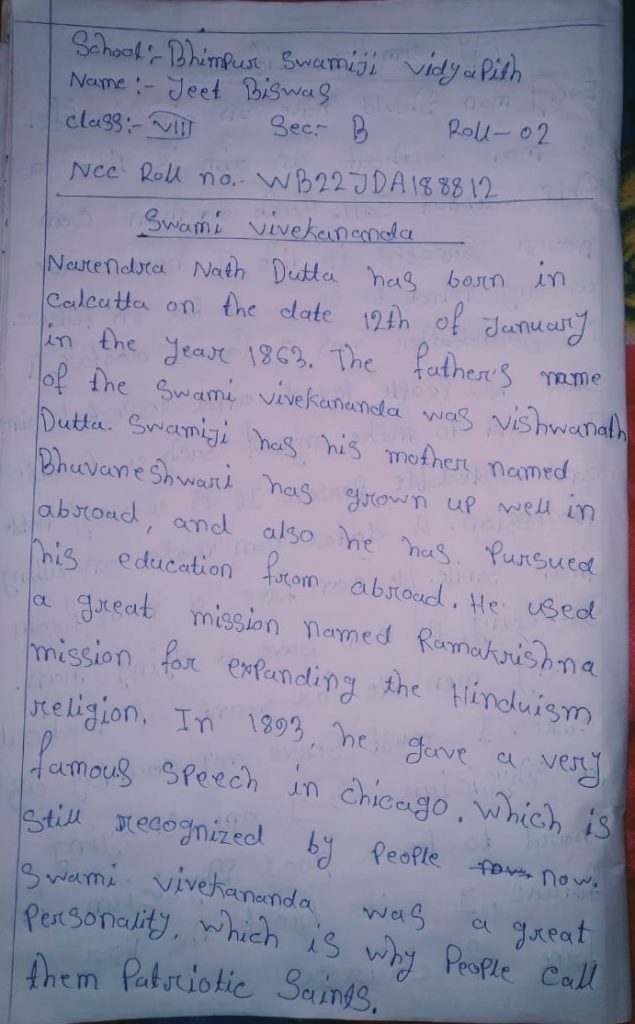 School:- Bhimpur Swamiji Vidyapith
Name:- Jeet Biswas
Class:- VIII Sec:- B Roll- 02
Ncc Roll no.- WB22JDA188812
Swami Vivekananda
Narendra Nath Dutta has born in
Calcutta on the date 12th of January
in the year 1863. The father's name
of the Swami Vivekananda was Vishwanath
Dutta. Swamiji has his mother named
Bhuvaneshwari has grown up well in
abroad, and also he has pursued
his education from abroad. He used
a great mission named Ramakrishna
mission for expanding the Hinduism
religion. In 1893, he gave a very
famous speech in Chicago. Which is
still recognized by people now.
Swami Vivekananda was a great
Personality. Which is why People call
them Patriotic Saints.